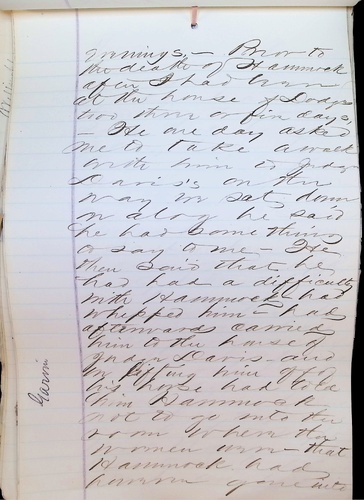 mornings, — Prior to
the death of Hammock
after I had been
at the house of Dodgs
two three or five days,
— He one day asked
me to take a walk
with him to Judge
Davis's on the
way we sat down
on a log he said
he had something
to say to me — He
then said that he
had had a difficulty
with Hammock — had
whipped him — had
afterwards carried
him to the house of
Judge Davis — and
him off of
his horse had told
him Hammock
not to go into the
room where the
women were — that
Hammock had
however gone into
Garvin